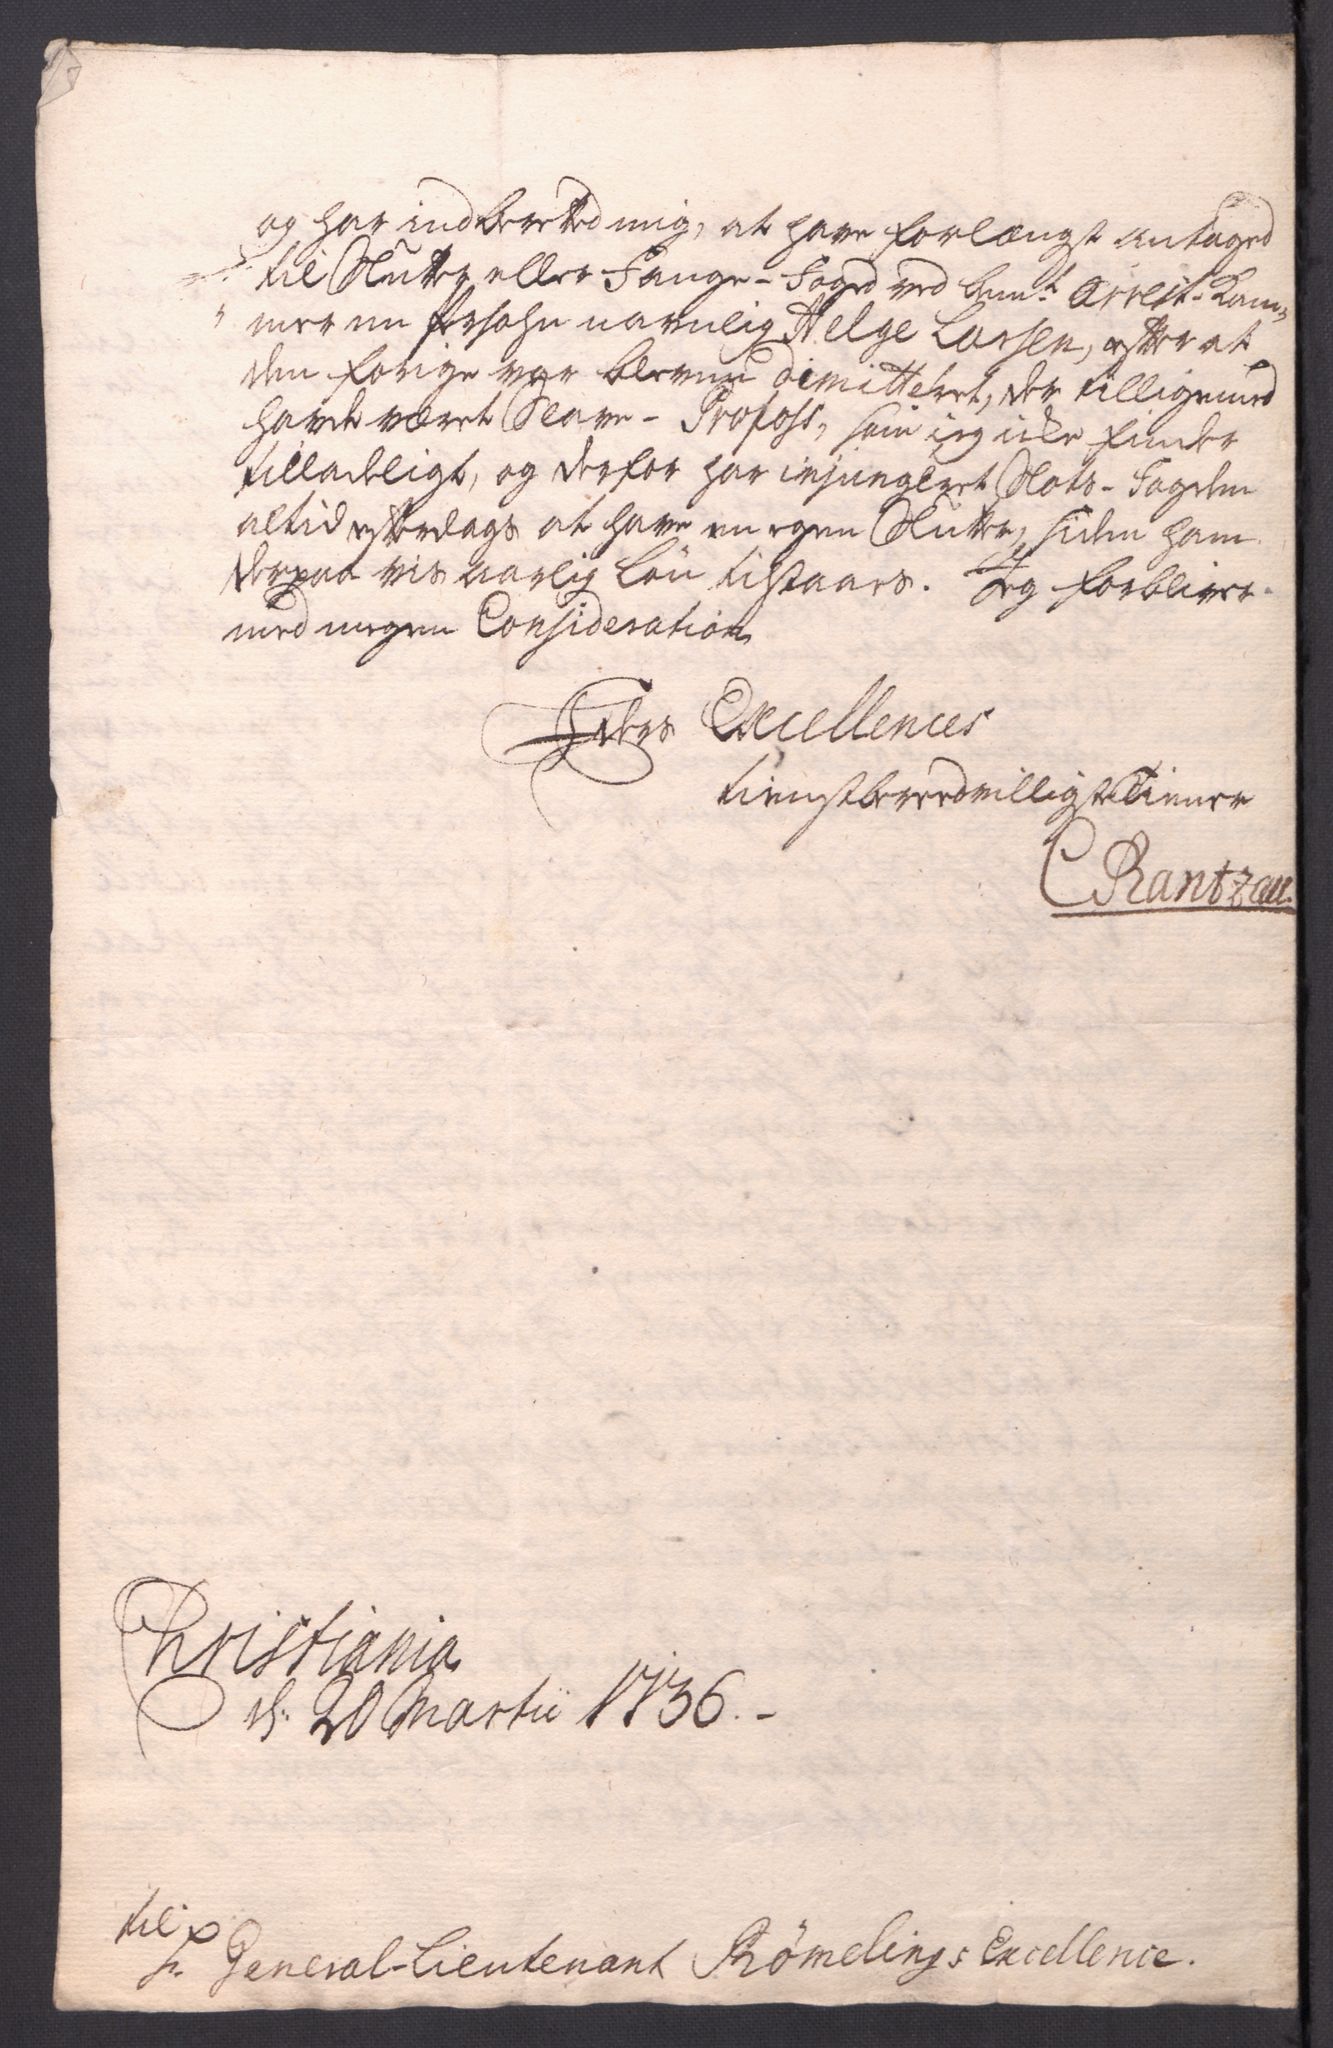 og har indberetted mig, at have forlængst antaged
til Slutter eller Fange-Foged ved bem.t Arrest-Kam-
mer en Persohn navnlig Helge Larsen, efter at
den forige var bleven dimitteret, der tilligemed
havde været Slave-Profoss, som jeg icke finder
tilladeligt, og derfor har injungeret Slots-Fogden
altid efterdags at have en egen Slutter, siden ham
derpaa vis aarlig Løn tilstaaes. Jeg forbliver
med megen Consideration
Eders Excellences
tienstbereedvilligste Tiener
C Rantzau.
Christiania
d. 20 Martii 1736.-
til
Hr. General-Lieutenant Rømelings Excellence.